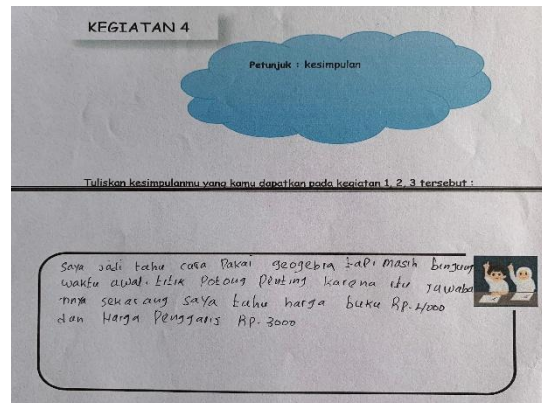 KEGIATAN 4
Petunjuk : kesimpulan
Tuliskan kesimpulanmu yang kamu dapatkan pada kegiatan 1, 2, 3 tersebut :
Saya jadi tahu cara Pakai geogebra tapi masih bingung
waktu awal. titik Potong Penting karena itu Jawaba
nnya sekarang saya tahu harga buku Rp. 4000
dan Harga Penggaris Rp. 3000